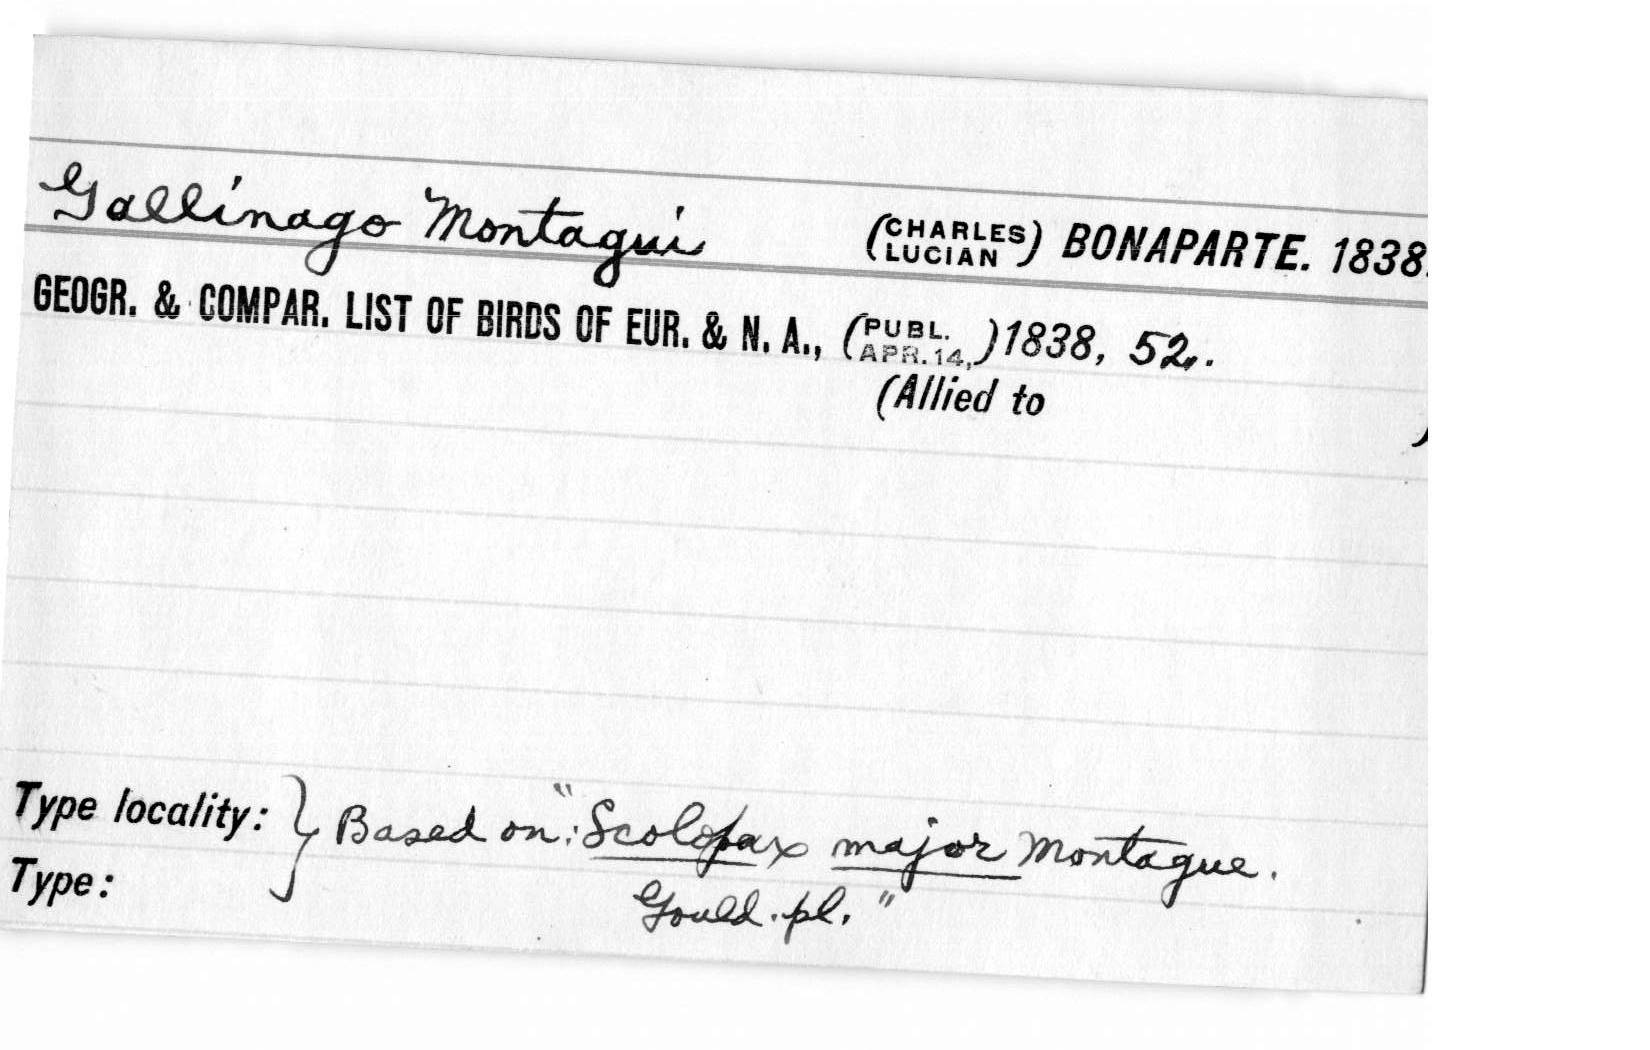 Gallinago Montagui (CHARLES LUCIAN) BONAPARTE. 1838.
GEOGR. & COMPAR. LIST OF BIRDS OF EUR. & N. A., (PUBL. APR. 14,) 1838, 52.
(Allied to )
Type locality: } Based on: "Scolopax major Montague.
Type: Gould. pl."